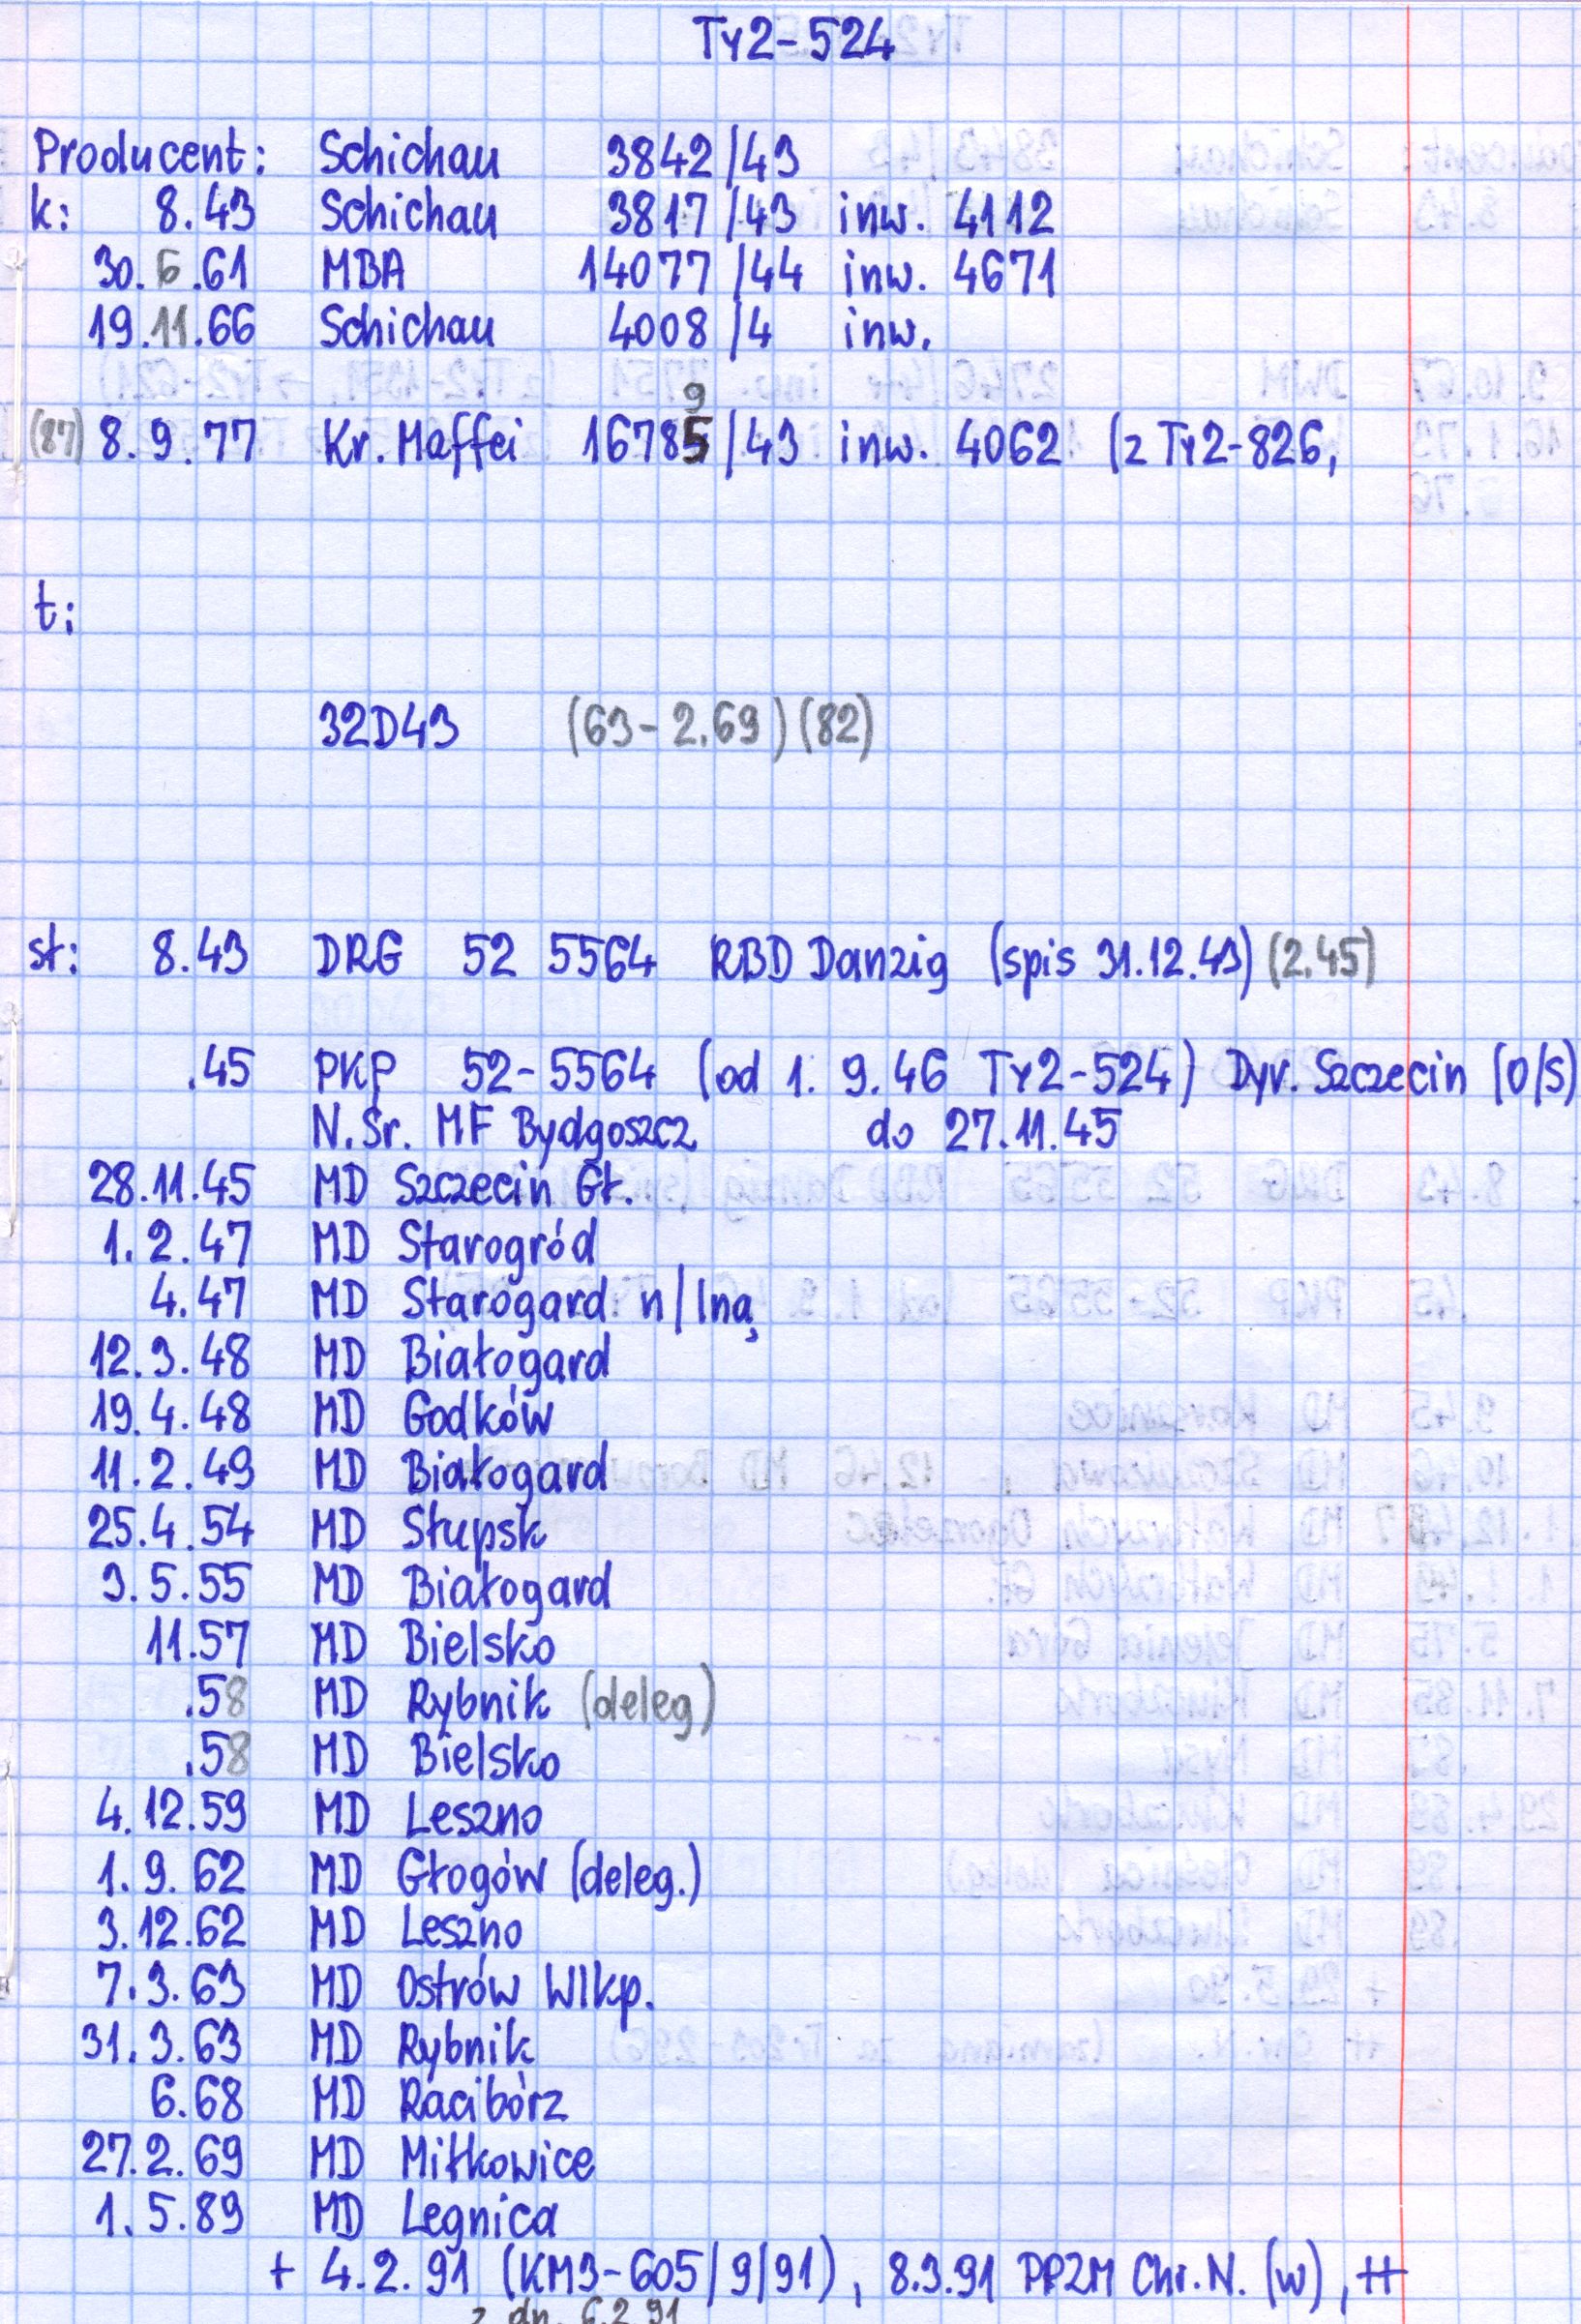 Ty2-524
Producent: Schichau 3842/43
k: 8.43 Schichau 3817/43 inw. 4112
30.6.61 MBA 14077/44 inw. 4671
19.11.66 Schichau 4008/4 inw.
9
(87) 8.9.77 Kr. Maffei 16785/43 inw. 4062 (z Ty2-826,
t:
32D43 (63-2.69) (82)
st: 8.43 DRG 52 5564 RBD Danzig (spis 31.12.43) (2.45)
.45 PKP 52-5564 (od 1.9.46 Ty2-524) Dyr. Szczecin (O/S)
N.Śr. MF Bydgoszcz do 27.11.45
28.11.45 MD Szczecin Gł.
1.2.47 MD Starogród
4.47 MD Starogard n/Iną
12.3.48 MD Białogard
19.4.48 MD Godków
11.2.49 MD Białogard
25.4.54 MD Słupsk
3.5.55 MD Białogard
11.57 MD Bielsko
.58 MD Rybnik (deleg)
.58 MD Bielsko
4.12.59 MD Leszno
1.9.62 MD Głogów (deleg.)
3.12.62 MD Leszno
7.3.63 MD Ostrów Wlkp.
31.3.63 MD Rybnik
6.68 MD Racibórz
27.2.69 MD Miłkowice
1.5.89 MD Legnica
+ 4.2.91 (KM3-605/9/91), 8.3.91 PPZM Chr.N. (w), ++
z dn. 6.2.91